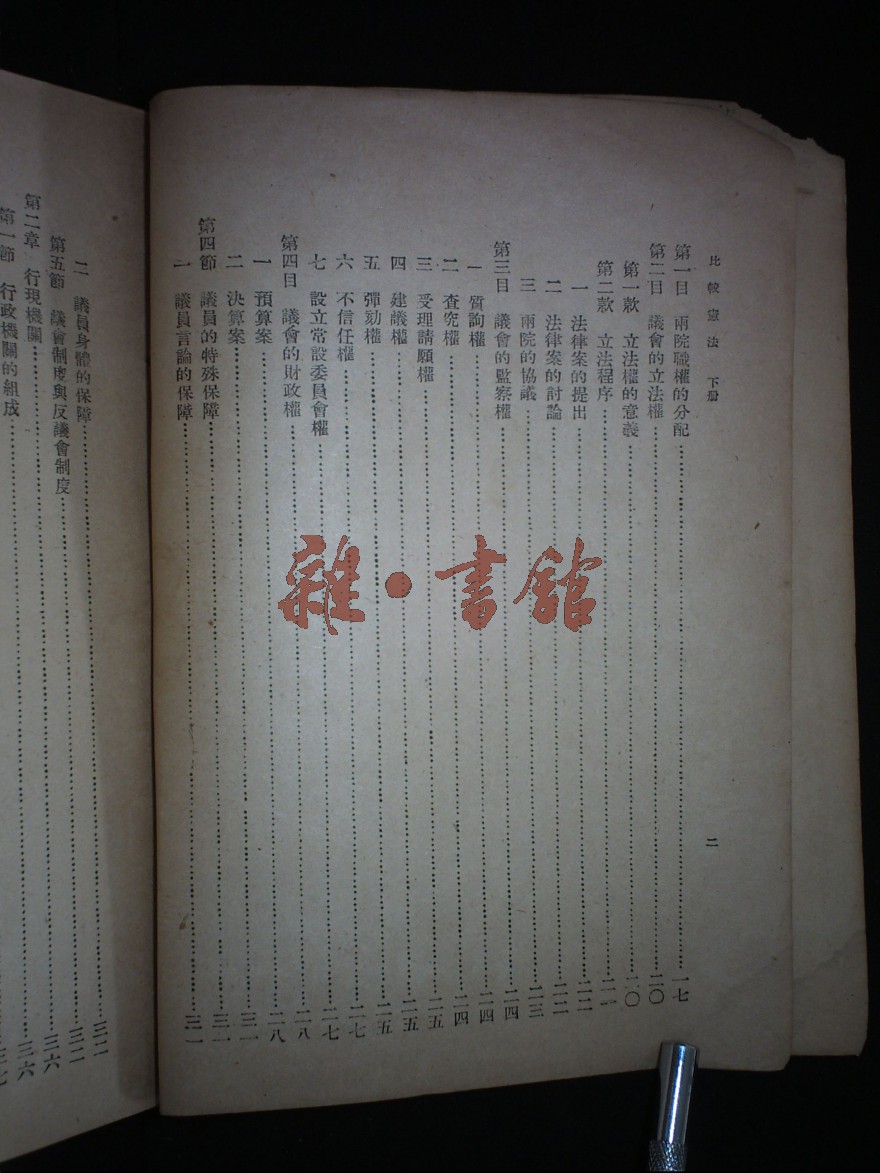 比較憲法 下册
二
第一目 兩院職權的分配……一七
第二目 議會的立法權……二〇
第一款 立法權的意義……二〇
第二款 立法程序……二一
一 法律案的提出……二二
二 法律案的討論……二二
三 兩院的協議……二三
第三目 議會的監察權……二四
一 質詢權……二四
二 查究權……二四
三 受理請願權……二五
四 建議權……二五
五 彈劾權……二五
六 不信任權……二七
七 設立常設委員會權……二七
第四目 議會的財政權……二八
一 預算案……二八
二 決算案……三一
第四節 議員的特殊保障……三一
一 議員言論的保障……三一
二 議員身體的保障……三二
第五節 議會制度與反議會制度……三二
第二章 行現機關……三六
第一節 行政機關的組成……三六
雜·書館